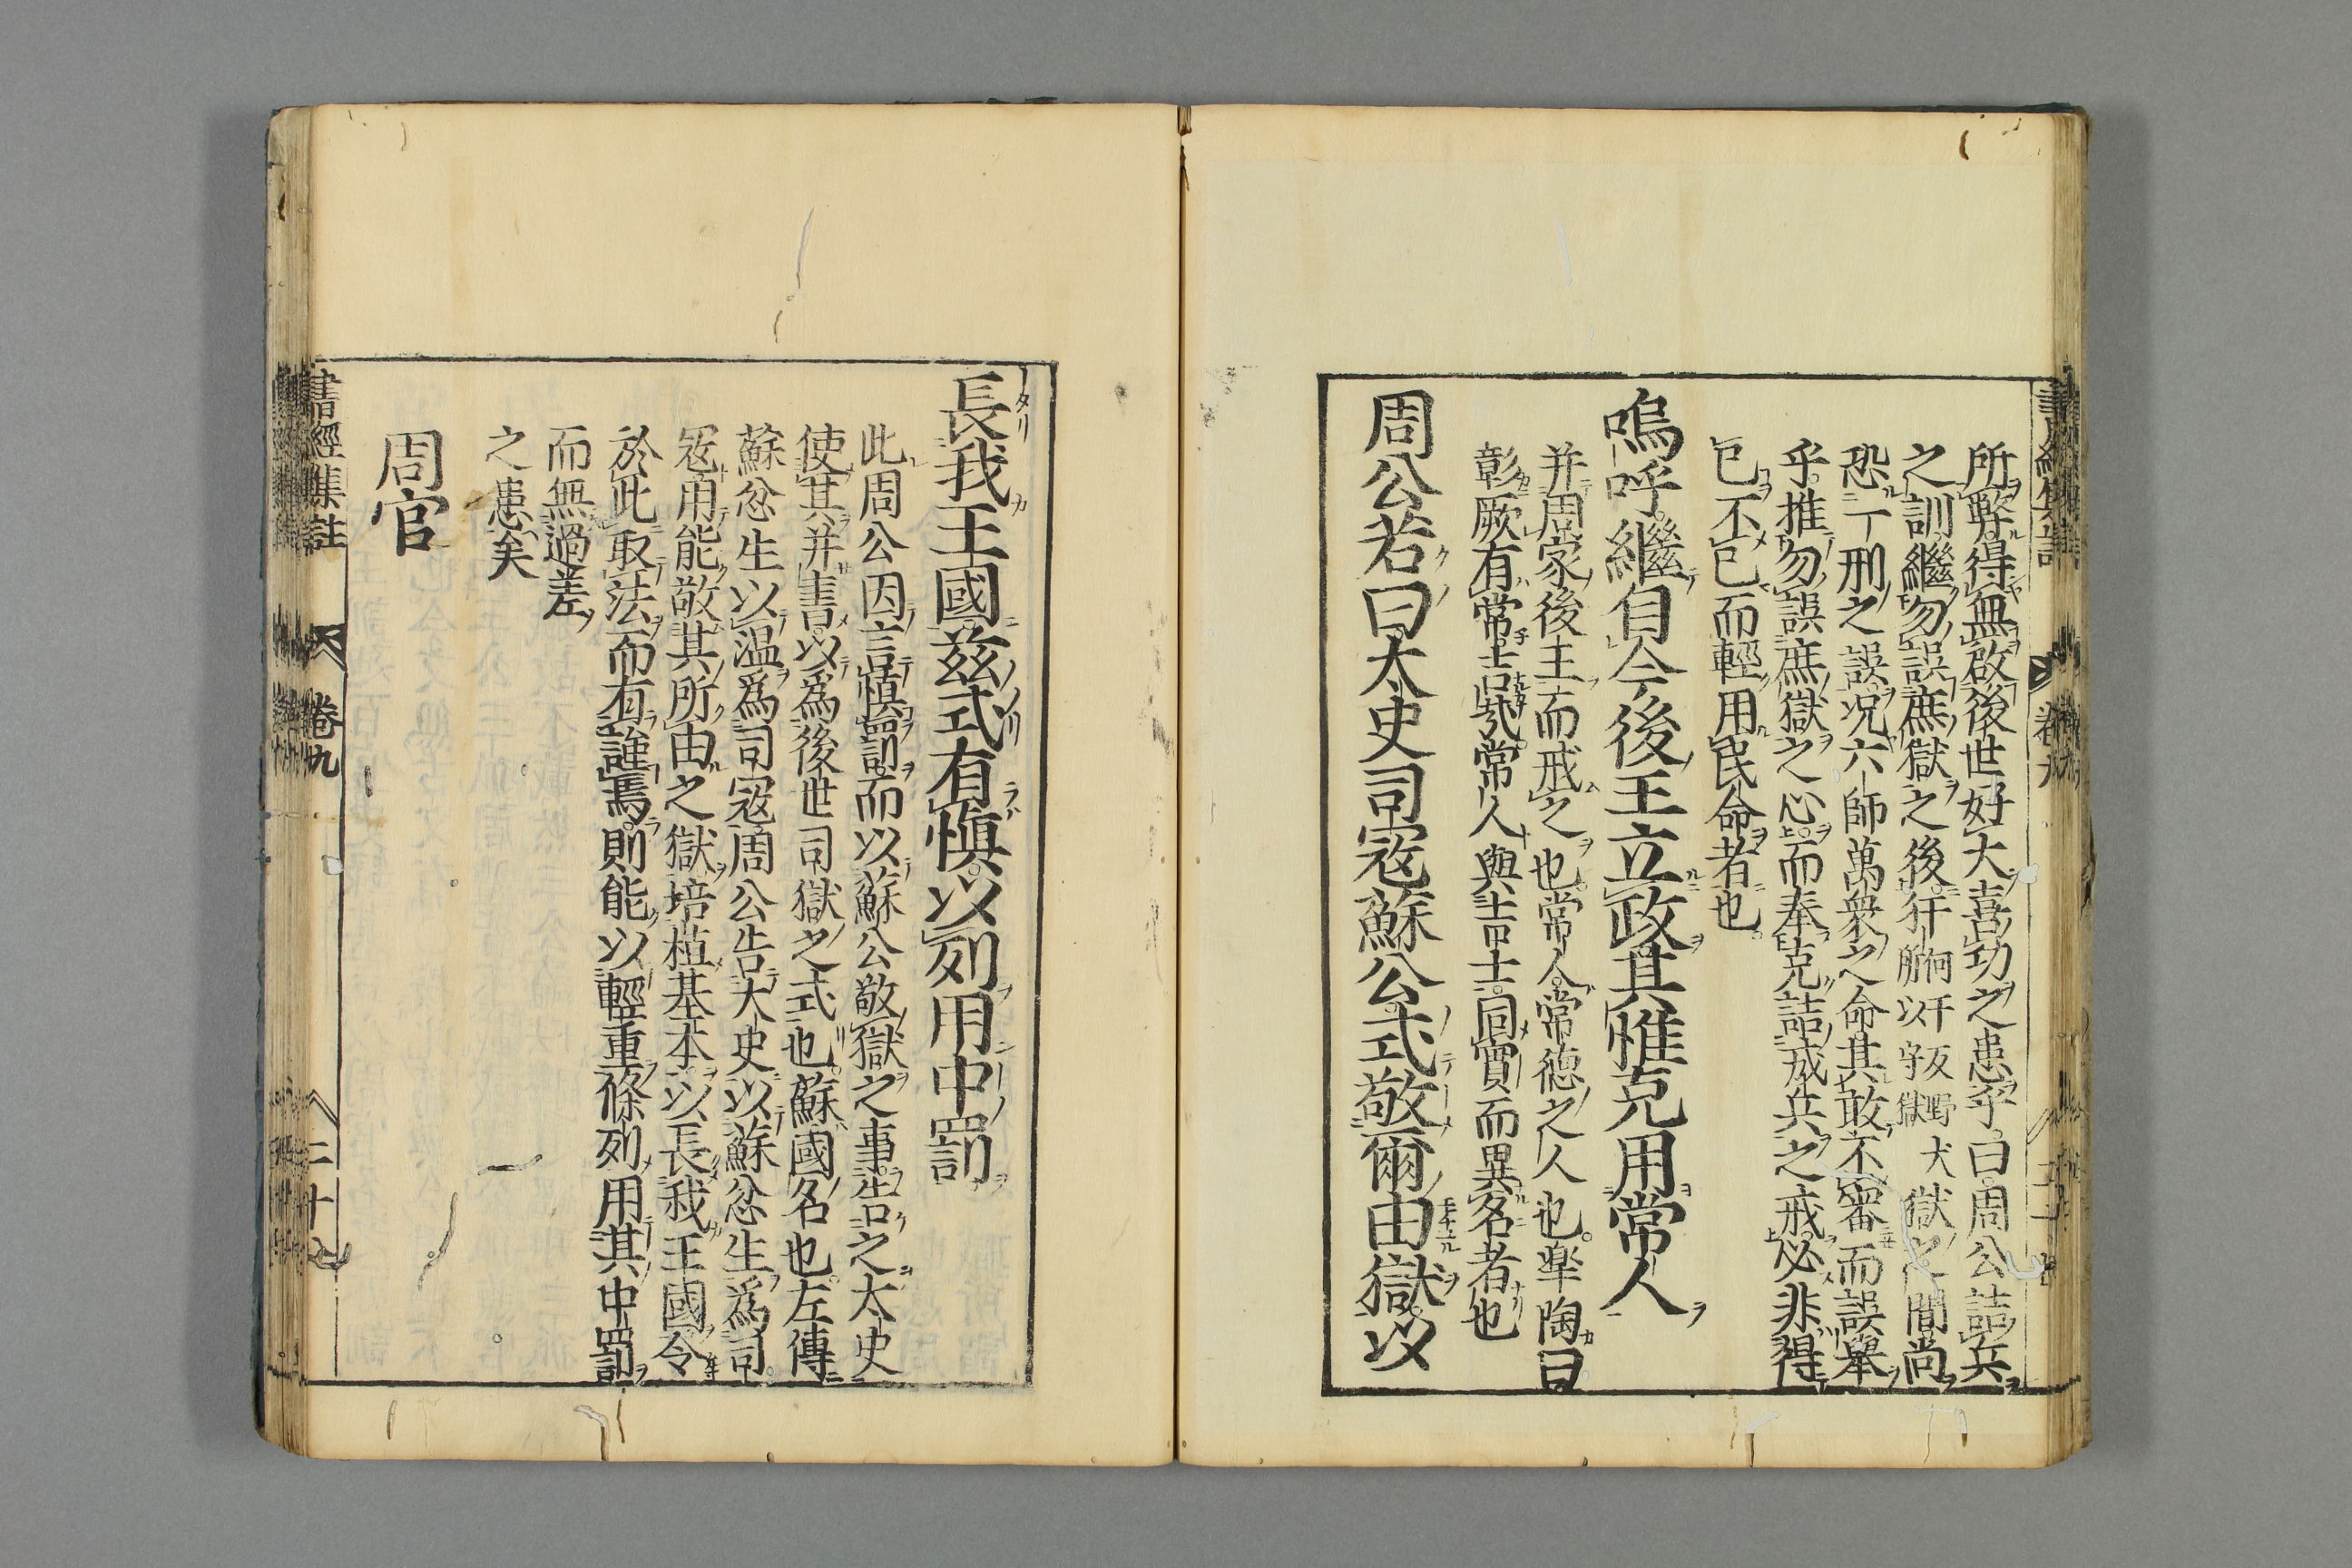 所弊得無啟後世好大喜功之患乎曰周公詰兵
之訓繼勿誤庶獄之後犴胢以守獄何干反野犬獄之間尚
恐一刑之誤况六師萬衆之命其敢不審而誤舉
乎推勿誤庶獄之心而奉克詰戒兵之戒必非得
已不已而輕用民命者也
嗚呼繼自今後王立政其惟克用常人
并周家後王而戒之也常人常德之人也皐陶曰
彰厥有常吉哉常人與吉士同實而異名者也
周公若曰太史司寇蘇公式敬爾由獄以
長我王國兹式有愼以列用中罰
此周公因言愼罰而以蘇公敬獄之事告之太史
使其并書以爲後世司獄之式也蘇國名也左傳
蘇忿生以溫爲司寇周公告太史以蘇忿生爲司
寇用能敬其所由之獄培植基本以長我王國令
於此取法而有謹焉則能以輕重條列用其中罰
而無過差
之患矣
周官
書經集註 卷九 二十七